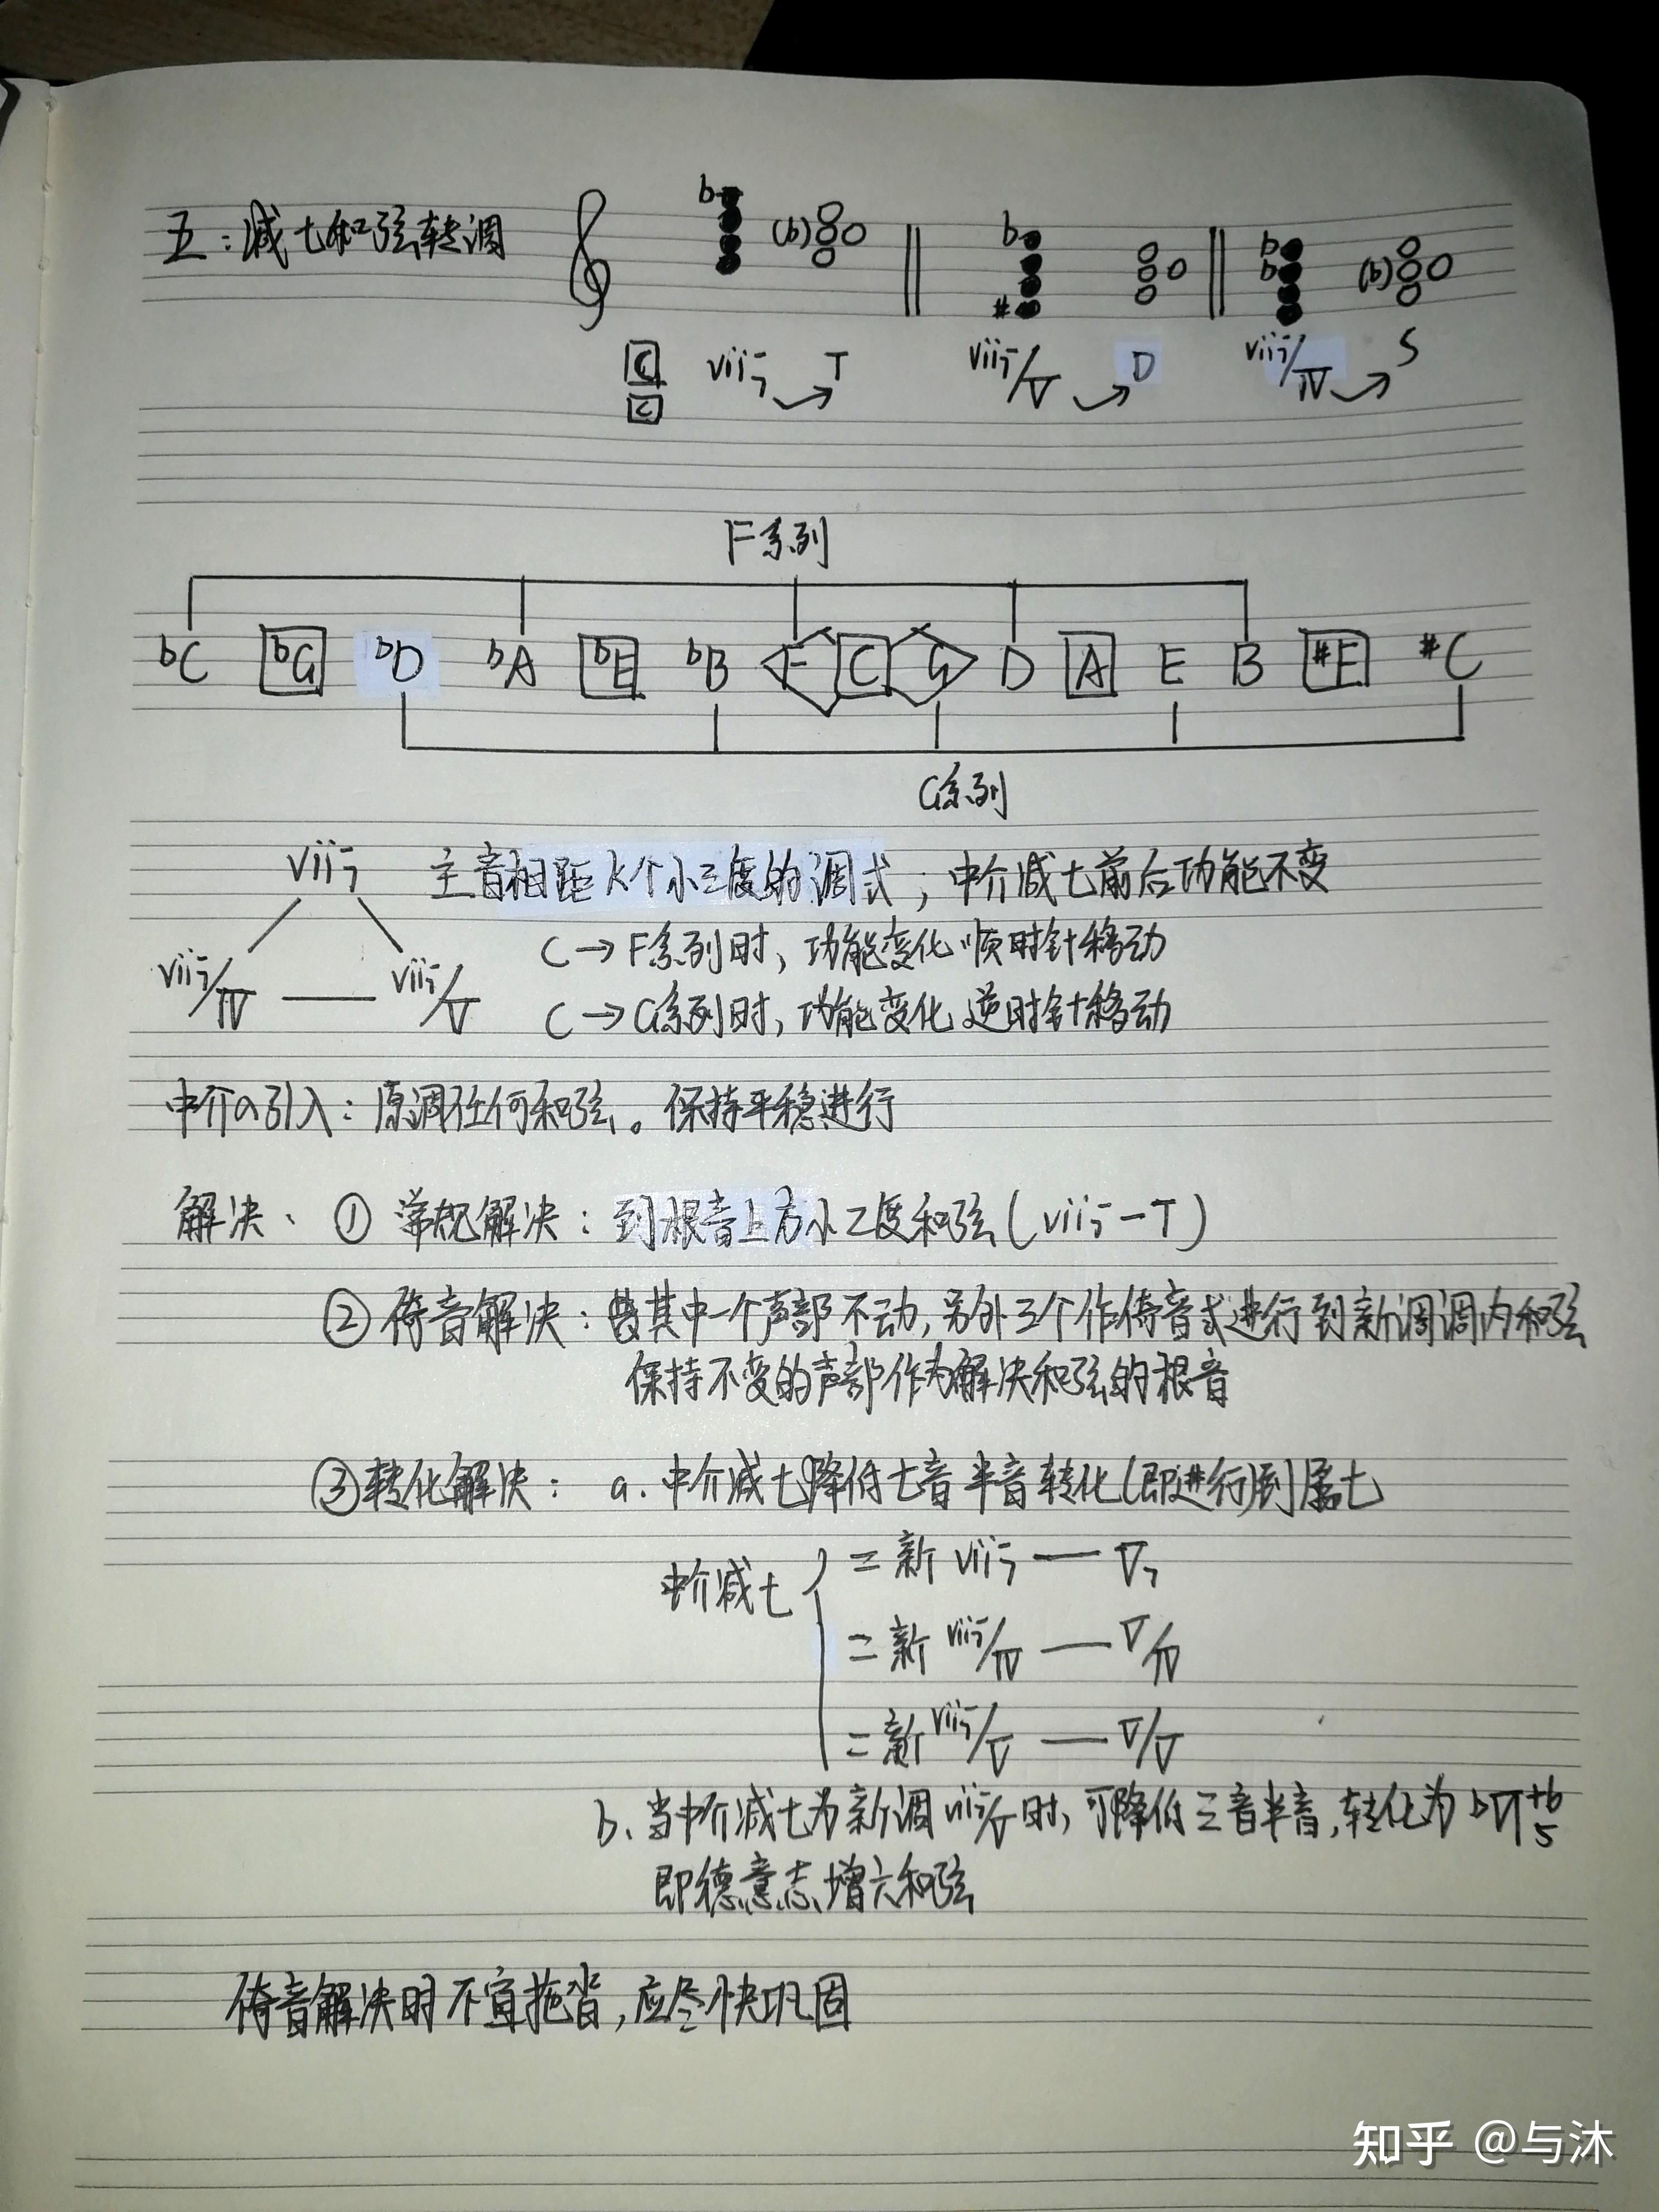 五：减七和弦转调
b (b) b # b b (b)
C vii7 T vii7/V D vii7/IV S
c
F系列
bC bG bD bA bE bB F C G D A E B #F #C
G系列
vii7 主音相距K个小三度的调式，中介减七前后功能不变
vii7/IV vii7/V C→F系列时，功能变化顺时针移动
C→G系列时，功能变化逆时针移动
中介的引入：原调任何和弦。保持平稳进行
解决、①常规解决：到根音上方小二度和弦（vii7－T）
②倚音解决：其中一个声部不动，另外三个作倚音式进行到新调调内和弦
保持不变的声部作为解决和弦的根音
③转化解决：a.中介减七降低七音半音转化(即进行)到属七
中介减七 =新vii7—V7
=新vii7/IV—V/IV
=新vii7/V—V/V
b、当中介减七为新调vii7/V时，可降低三音半音，转化为bVI+6 5
即德意志增六和弦
倚音解决时不宜拖沓，应尽快巩固
知乎 @与沐